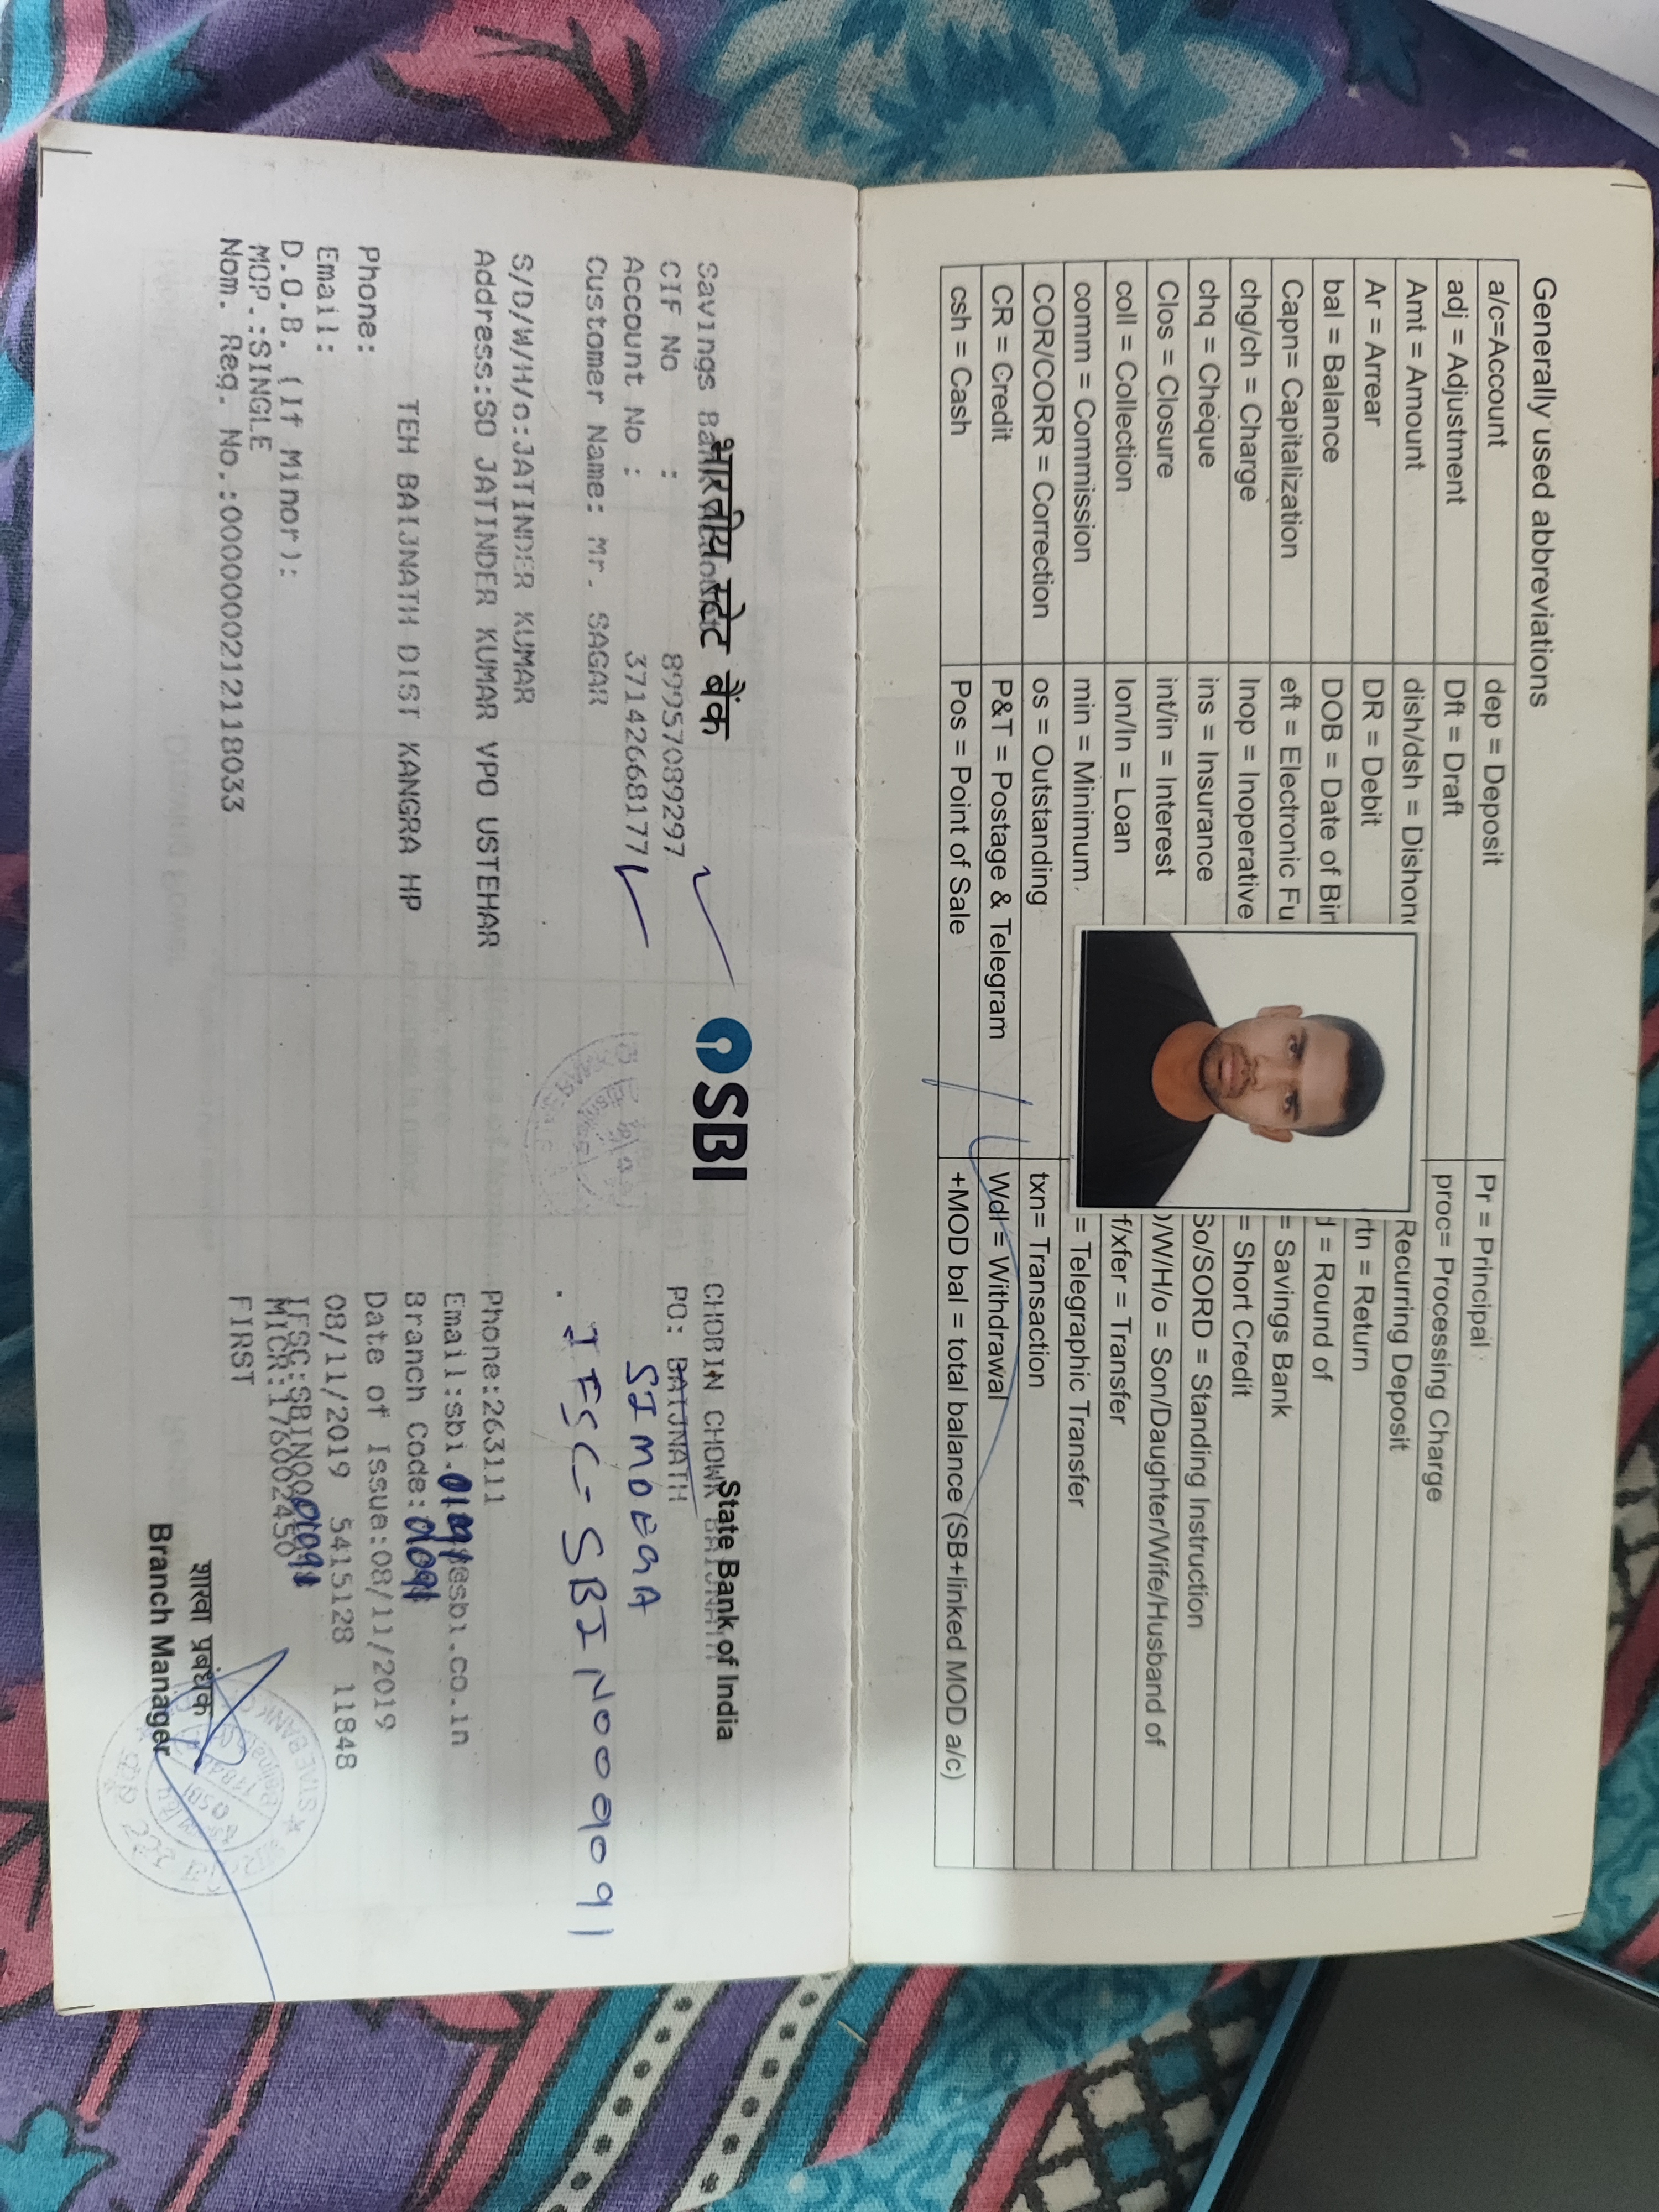 Generally used abbreviations
a/c=Account dep = Deposit Pr = Principal
adj = Adjustment Dft = Draft proc= Processing Charge
Amt = Amount dish/dsh = Dishon Recurring Deposit
Ar = Arrear DR = Debit rtn = Return
bal = Balance DOB = Date of Bir d = Round of
Capn= Capitalization eft = Electronic Fu = Savings Bank
chg/ch = Charge Inop = Inoperative = Short Credit
chq = Cheque ins = Insurance So/SORD = Standing Instruction
Clos = Closure int/in = Interest )/W/H/o = Son/Daughter/Wife/Husband of
coll = Collection lon/ln = Loan f/xfer = Transfer
comm = Commission min = Minimum = Telegraphic Transfer
COR/CORR = Correction os = Outstanding txn= Transaction
CR = Credit P&T = Postage & Telegram Wdl = Withdrawal
csh = Cash Pos = Point of Sale +MOD bal = total balance (SB+linked MOD a/c)
भारतीय स्टेट बैंक SBI State Bank of India
Savings Bank CHOBIN CHOWK BAIJNATH
CIF No : 89957089297 PO: BAIJNATH
Account No : 37142668177 SIMOEGA
Customer Name: Mr. SAGAR IFSC-SBIN0009091
S/D/W/H/o:JATINDER KUMAR
Address:SO JATINDER KUMAR VPO USTEHAR Phone:263111
Email:sbi. @sbi.co.in
TEH BAIJNATH DIST KANGRA HP Branch Code:
Phone: Date of Issue:08/11/2019
Email: 08/11/2019 5415128 11848
D.O.B. (If Minor): IFSC:SBIN00
MOP.:SINGLE MICR:176002450
Nom. Reg. No.:0000000212118033 FIRST
शाखा प्रबंधक
Branch Manager